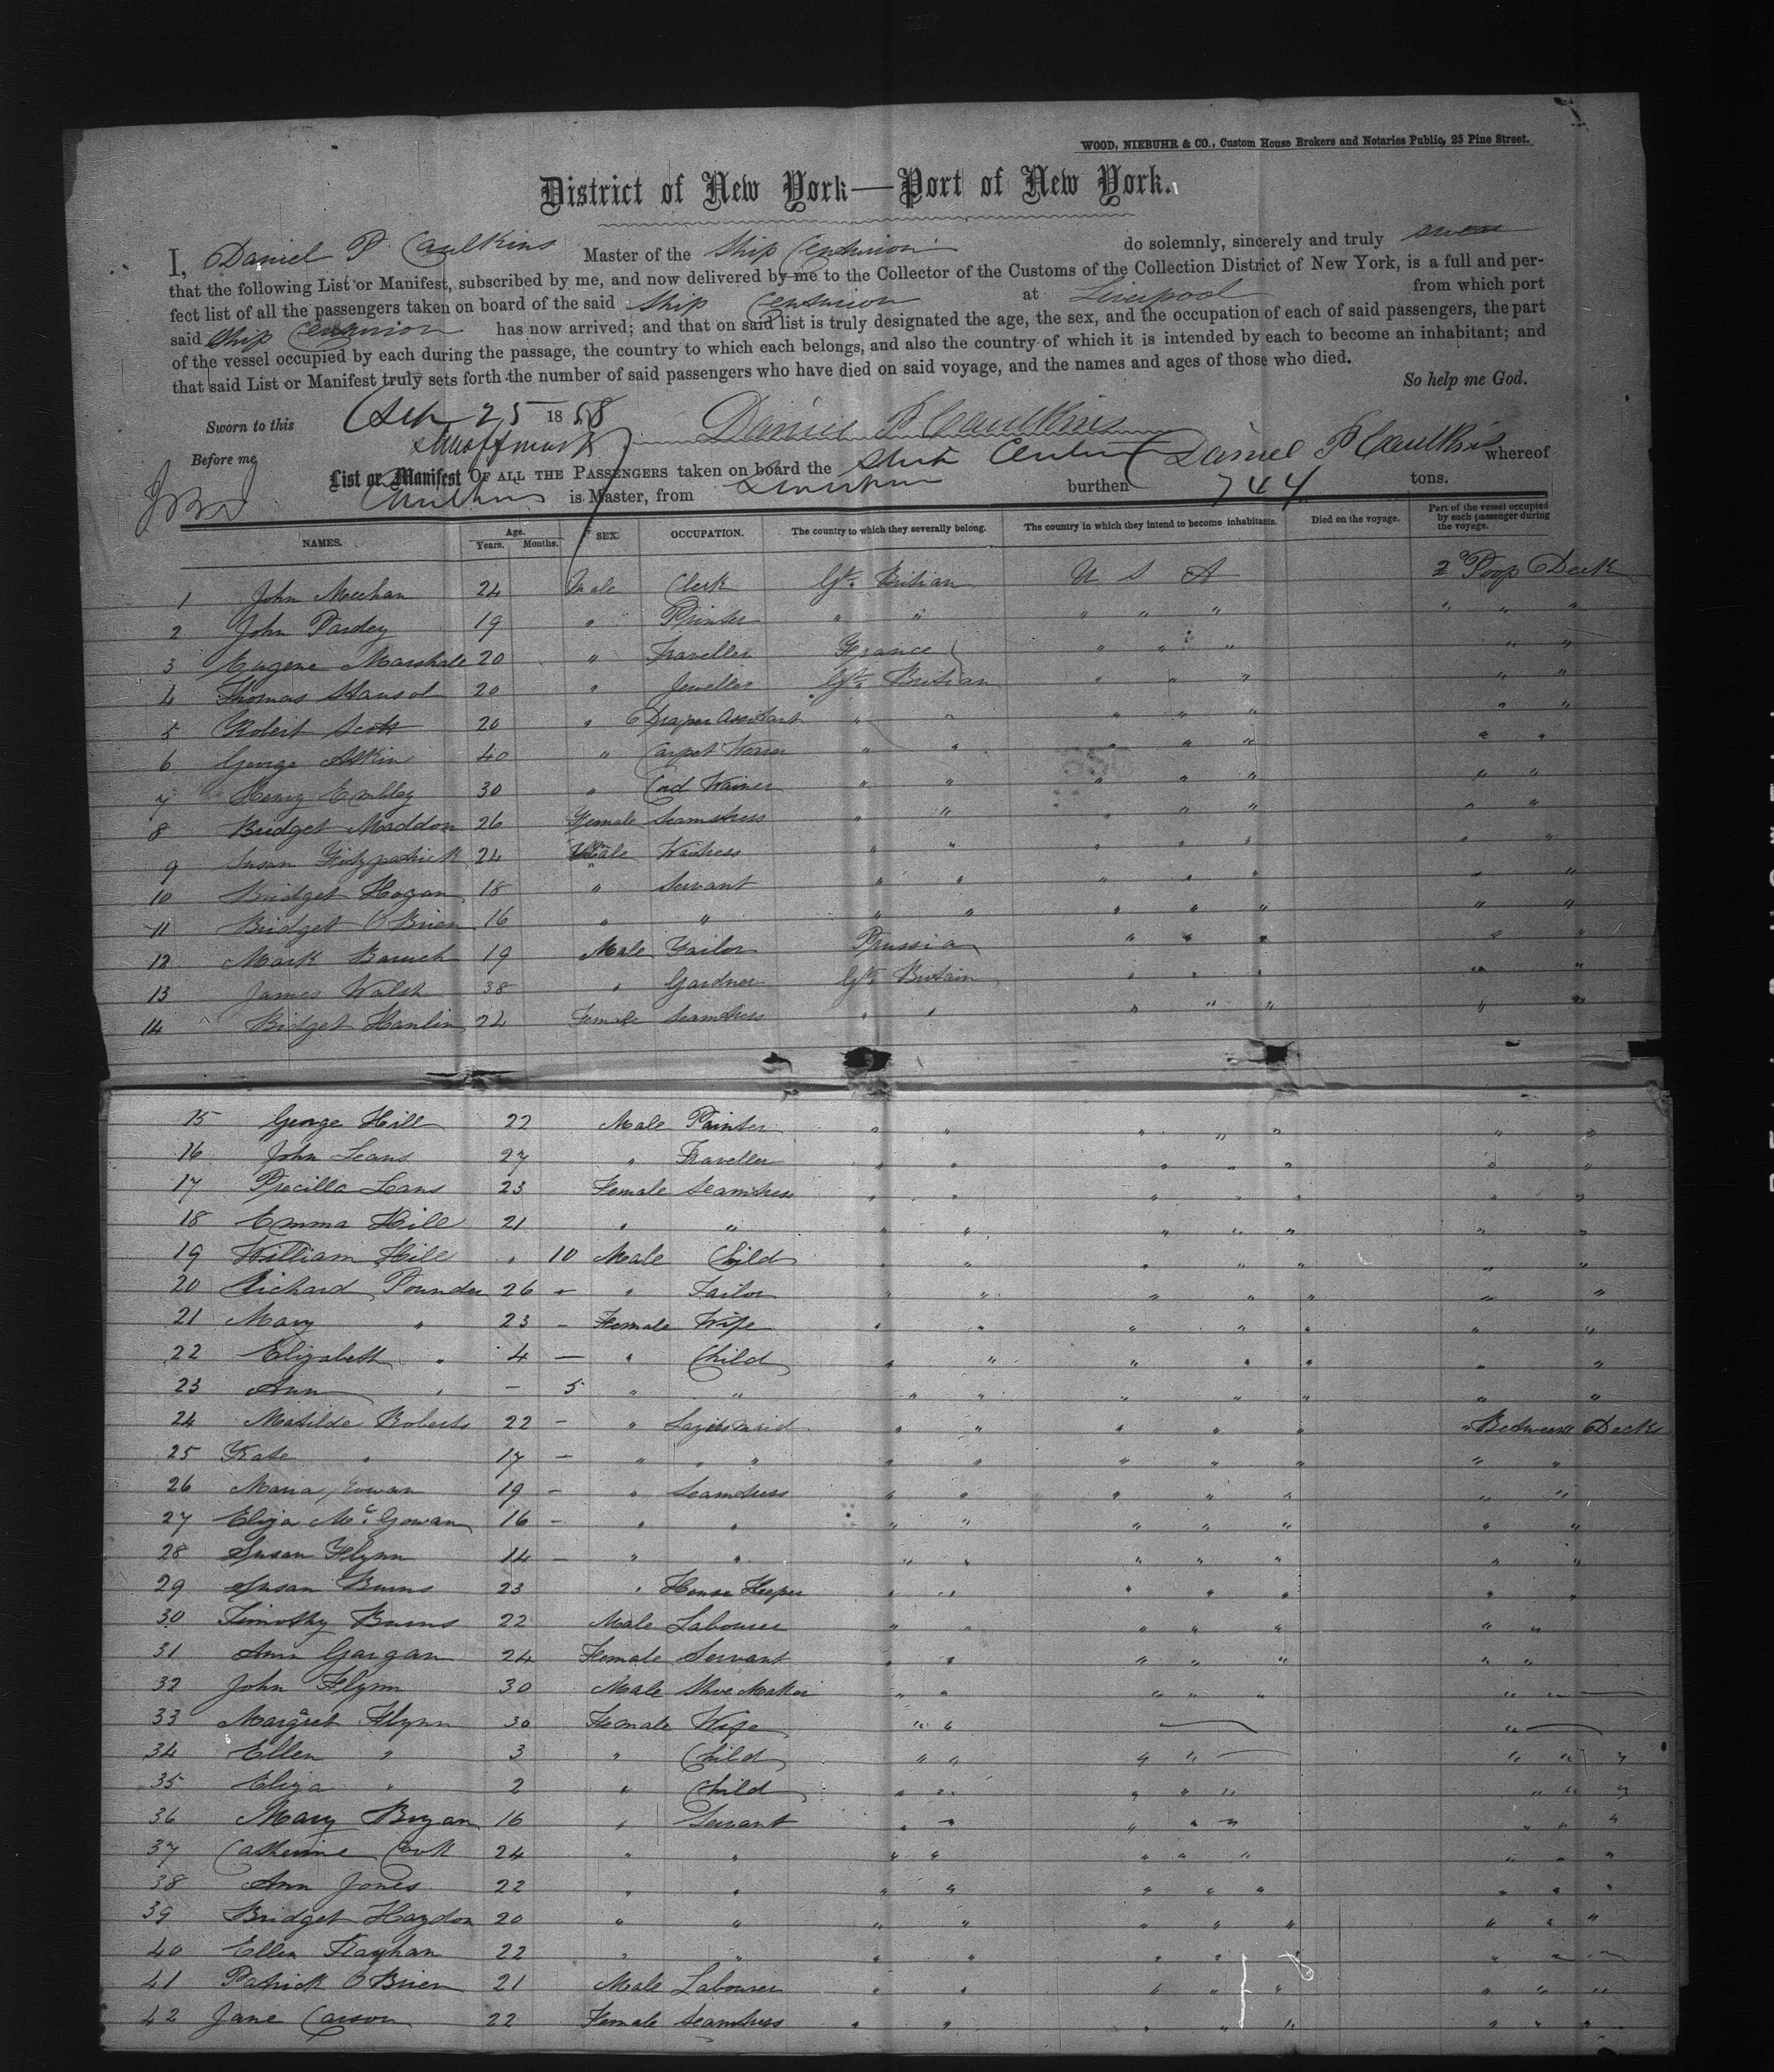 WOOD, NIEBUHR & CO., Custom House Brokers and Notaries Public, 25 Pine Street.
District of New York—Port of New York.
I, Daniel P Caulkins Master of the Ship Centurion do solemnly, sincerely and truly swear
that the following List or Manifest, subscribed by me, and now delivered by me to the Collector of the Customs of the Collection District of New York, is a full and per-
fect list of all the passengers taken on board of the said Ship Centurion at Liverpool from which port
said Ship Centurion has now arrived; and that on said list is truly designated the age, the sex, and the occupation of each of said passengers, the part
of the vessel occupied by each during the passage, the country to which each belongs, and also the country of which it is intended by each to become an inhabitant; and
that said List or Manifest truly sets forth the number of said passengers who have died on said voyage, and the names and ages of those who died.
So help me God.
Sworn to this 25 1858 Daniel P Caulkins
Before me
List or Manifest OF ALL THE PASSENGERS taken on board the Ship Daniel P Caulkins whereof
Caulkins is Master, from Liverpool burthen 744 tons.
NAMES. Age. Years. Months. SEX. OCCUPATION. The country to which they severally belong. The country in which they intend to become inhabitants. Died on the voyage. Part of the vessel occupied by each passenger during the voyage.
1 John Meehan 24 Male Clerk Gt. Britian U S A 2 Poop Deck
2 John Pardey 19 " Printer " " " " " " " "
3 Eugene Marshale 20 " Traveller France " " " " "
4 Thomas Hansol 20 " Jeweller Gt. Britian " " " "
5 Robert Scott 20 " Draper Assistant " " " " " " "
6 George Askin 40 " Carpet Weaver " " " " " " "
7 Henry Embley 30 " Cord Wainer " " " " " " "
8 Bridget Maddon 26 Female Seamstress " " " " " " "
9 Susan Fitzpatrick 24 Waitress " " " " " " "
10 Bridget Hogan 18 " Servant " " " " " " "
11 Bridget O Brien 16 " " " " " " " " "
12 Mark Baruch 19 Male Tailor Prussia " " " " "
13 James Walsh 38 " Gardner Gt. Britain " " " " "
14 Bridget Hanlin 22 Female Seamstress " " " " " " "
15 George Hill 22 Male Painter " " " " " " "
16 John Leans 27 " Traveller " " " " " " "
17 Precilla Leans 23 Female Seamstress " " " " " " "
18 Emma Hill 21 " " " " " " " " "
19 William Hill " 10 Male Child " " " " " "
20 Richard Pounder 26 - " Tailor " " " " " " "
21 Mary " 23 - Female Wife " " " " " " "
22 Elizabeth " 4 - " Child " " " " " " "
23 Ann " - 5 " " " " " " " " "
24 Matilda Roberts 22 - " Ladies Maid " " " " " " Between Decks
25 Kate " 17 - " " " " " " " " " "
26 Maria 19 - " Seamstress " " " " " " "
27 Eliza Mc. Gowan 16 - " " " " " " " " "
28 Susan Flynn 14 - " " " " " " " " "
29 Susan Burns 23 " House Keeper " " " " " " "
30 Timothy Burns 22 Male Labourer " " " " " " "
31 Ann Gargan 24 Female Servant " " " " " " "
32 John Flynn 30 Male Shoe Maker " " " " " " "
33 Margret Flynn 30 Female Wife " " "
34 Ellen " 3 " Child " " " " " " "
35 Eliza " 2 " Child " " " " " " " "
36 Mary Bryan 16 " Servant " " " " " " " "
37 Catherine Cook 24 " " " " " " " " " "
38 Ann Jones 22 " " " " " " " " " "
39 Bridget Haydon 20 " " " " " " " " " "
40 Ellen 22 " " " " " " " " " "
41 Patrick O Brien 21 Male Labourer " " " " " " " "
42 Jane Carson 22 Female Seamstress " " " " " " " "